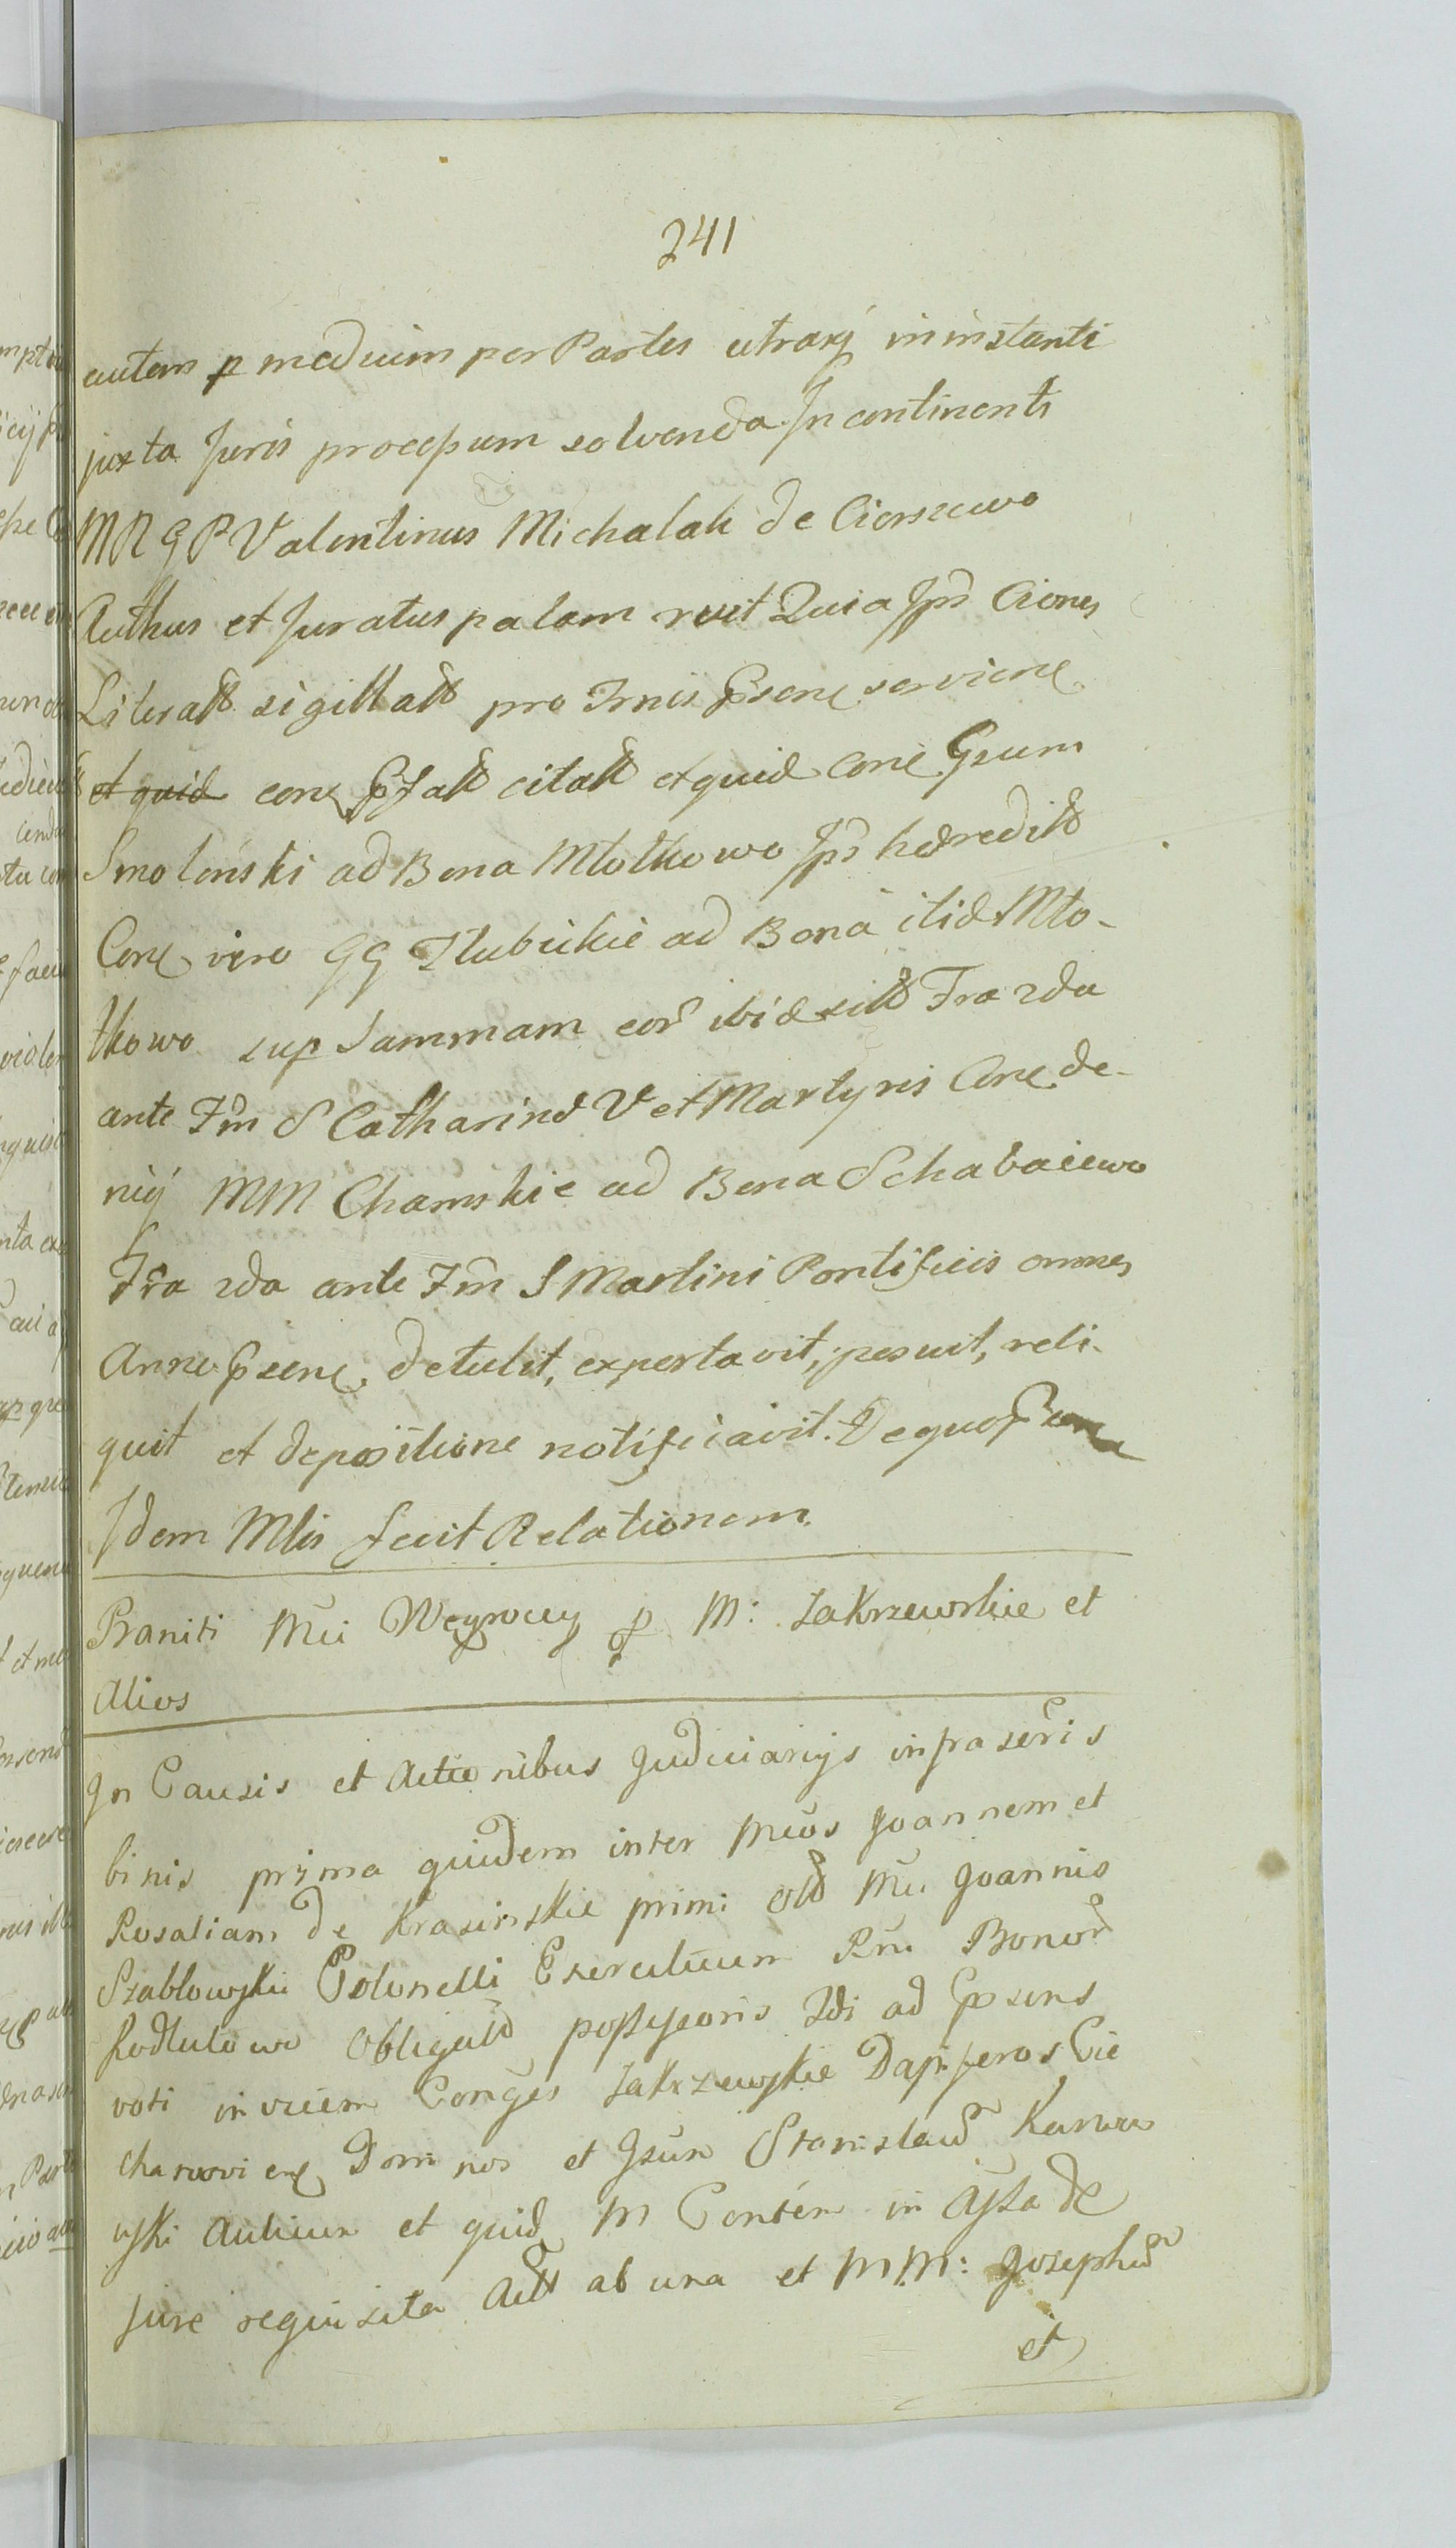 241
autem p medium per Partes utrasq in instanti
juxta Juris procesum solvenda In continenti
MRGP Valentinus Michalak de Cierszewo
Authus et Juratus palam rvit Quia Jps Ciones
Literatt sigillatt pro Trnis Psene serviene
et quid cone Pfatt citatt et quid cone Gsum
Smolenski ad Bona Młotkowo Jps hæreditt
Cone vero GG Zlubickie ad Bona itid Mło-
tkowo sup Summam cor ibid sitt Fra 2da
ante Fm S Catharinæ V et Martyris Cone de-
niq MM Chamskie ad Bona Schabaiewo
Fra 2da ante Fm S Martini Pontificis omnes
Anno Psene. detulit, exportavit, posuit, reli-
quit et depositione notificavit. De quo
Idem Mlis fecit Relationem.
Baniti Mci p M: Zakrzewskie et
Alios
In Causis et Actionibus Judiciarijs infrascris
binis prima quidem inter Mcos Joannem et
Rosaliam de Krasinskie primi Mci Joannis
Szablowskii Colonelli Exercituum Rni Bonor
obligatt possessoris 2di ad Psens
voti invicem Conges Zakrzewskie Dapiferos Cie
chanovienes Dominos et Gsum Stanislaum
wski Aulicum et quid M Conten in Assa de
jure requisita Actt ab una et MM: Josephum
et